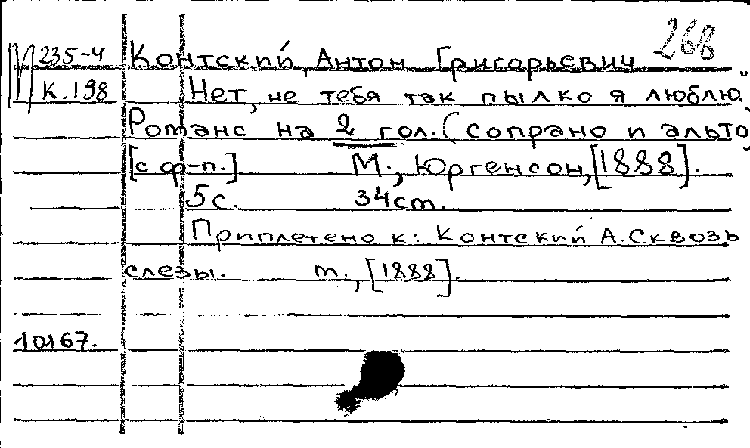 268
235-4 Контский, Антон Григорьевич
К.198 Нет, не тебя так пылко я люблю.
Романс на 2 гол. (сопрано и альто)
[с ф-п.] М., Юргенсон, [1888].
5 с. 34 cm.
Приплетено к: Контский А. Сквозь
слезы. м., [1888].
10167.